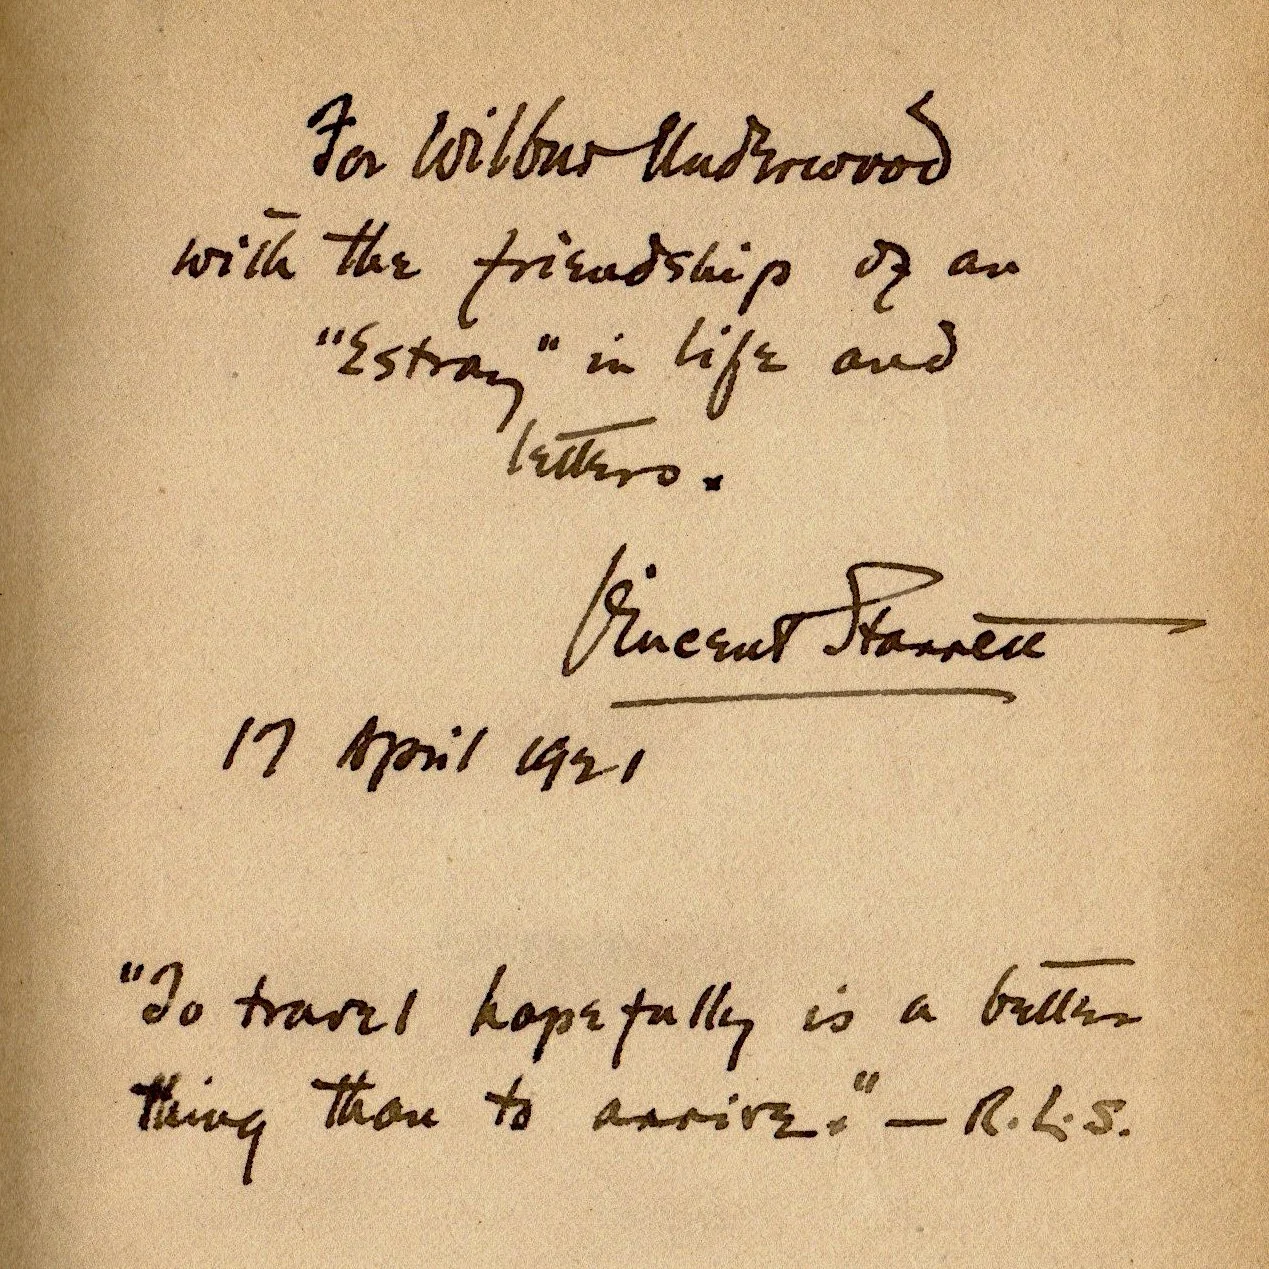 For Wilbur Underwood
with the friendship of an
"Estray" in life and
letters.
Vincent Starrett
17 April 1921
"To travel hopefully is a better
thing than to arrive." — R. L. S.